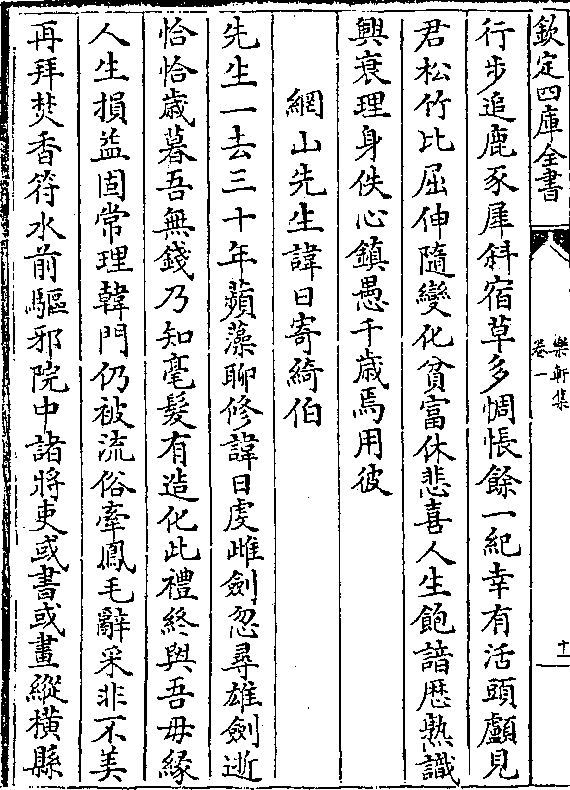 欽定四庫全書
樂軒集
卷一
十一
行步追鹿豕犀斜宿草多惆悵餘一紀幸有活頭顱見
君松竹比屈伸隨變化貧富休悲喜人生飽諳歴熟識
興衰理身佚心鎮愚千歳焉用彼
網山先生諱日寄綺伯
先生一去三十年蘋藻聊修諱日䖍雌劍忽尋雄劍逝
恰恰歳暮吾無錢乃知毫髮有造化此禮終與吾毋緣
人生損益固常理韓門仍被流俗牽鳳毛辭采非不美
再拜焚香符水前驅邪院中諸將吏或書或畫縱橫縣